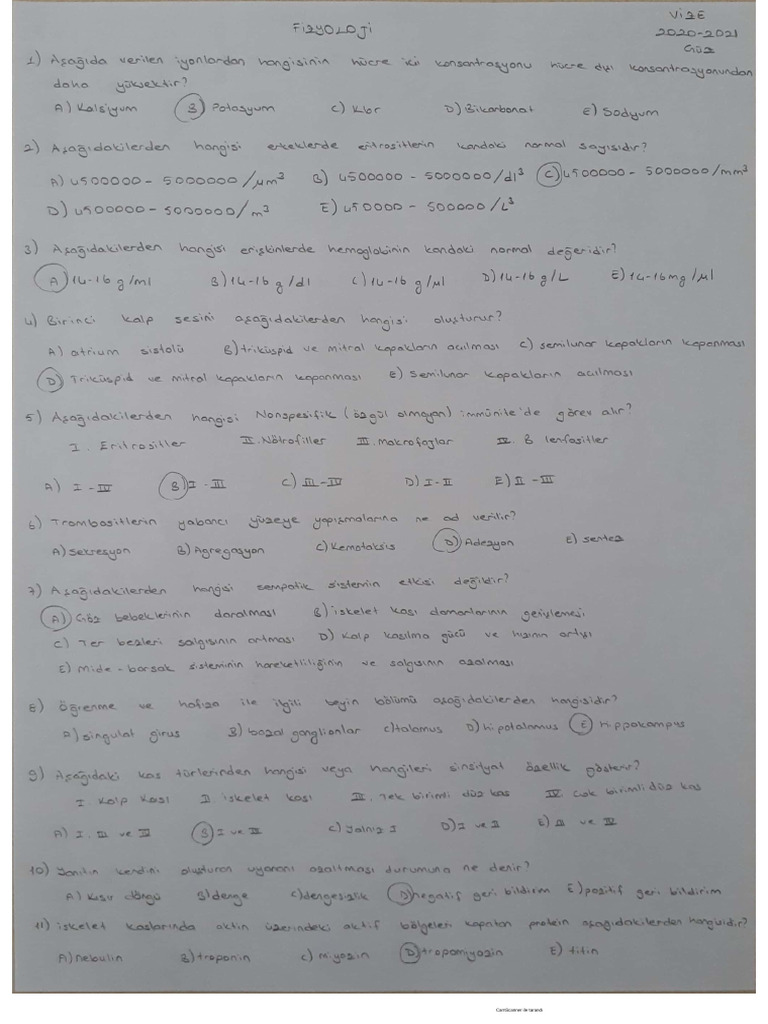 Fizyoloji
Vize
2020-2021
Güz
1) Aşağıda verilen iyonlardan hangisinin hücre içi konsantrasyonu hücre dışı konsantrasyonundan
daha yüksektir?
A) Kalsiyum B) Potasyum C) Klor D) Bikarbonat E) Sodyum
2) Aşağıdakilerden hangisi erkeklerde eritrositlerin kandaki normal sayısıdır?
A) 4500000 - 5000000/μm³ B) 4500000 - 5000000/dl³ C) 4500000 - 5000000/mm³
D) 4500000 - 5000000/m³ E) 450000 - 500000/L³
3) Aşağıdakilerden hangisi erişkinlerde hemoglobinin kandaki normal değeridir?
A) 14-16 g/ml B) 14-16 g/dl C) 14-16 g/μl D) 14-16 g/L E) 14-16 mg/μl
4) Birinci kalp sesini aşağıdakilerden hangisi oluşturur?
A) atrium sistolü B) triküspid ve mitral kapakların açılması C) semilunar kapakların kapanması
D) Triküspid ve mitral kapakların kapanması E) Semilunar kapakların açılması
5) Aşağıdakilerden hangisi Nonspesifik (özgül olmayan) immünite'de görev alır?
I. Eritrositler II. Nötrofiller III. Makrofajlar IV. B lenfositler
A) I - IV B) I - III C) III - IV D) I - II E) II - III
6) Trombositlerin yabancı yüzeye yapışmalarına ne ad verilir?
A) Sekresyon B) Agregasyon C) Kemotaksis D) Adezyon E) sentez
7) Aşağıdakilerden hangisi sempatik sistemin etkisi değildir?
A) Göz bebeklerinin daralması B) iskelet kası damarlarının genişlemesi
C) Ter bezleri salgısının artması D) Kalp kasılma gücü ve hızının artışı
E) Mide - barsak sisteminin hareketliliğinin ve salgısının azalması
8) Öğrenme ve hafıza ile ilgili beyin bölümü aşağıdakilerden hangisidir?
A) singulat girus B) bazal ganglionlar c) talamus D) hipotalamus E) hippokampus
9) Aşağıdaki kas türlerinden hangisi veya hangileri sinsityal özellik gösterir?
I. Kalp kası II. iskelet kası III. Tek birimli düz kas IV. Çok birimli düz kas
A) I. III ve IV B) I ve III C) Yalnız I D) I ve II E) III ve IV
10) Yanıtın kendini oluşturan uyaranı azaltması durumuna ne denir?
A) Kısır döngü B) denge C) dengesizlik D) negatif geri bildirim E) pozitif geri bildirim
11) iskelet kaslarında aktin üzerindeki aktif bölgeleri kapatan protein aşağıdakilerden hangisidir?
A) nebulin B) troponin C) miyozin D) tropomiyozin E) titin
CamScanner ile tarandı